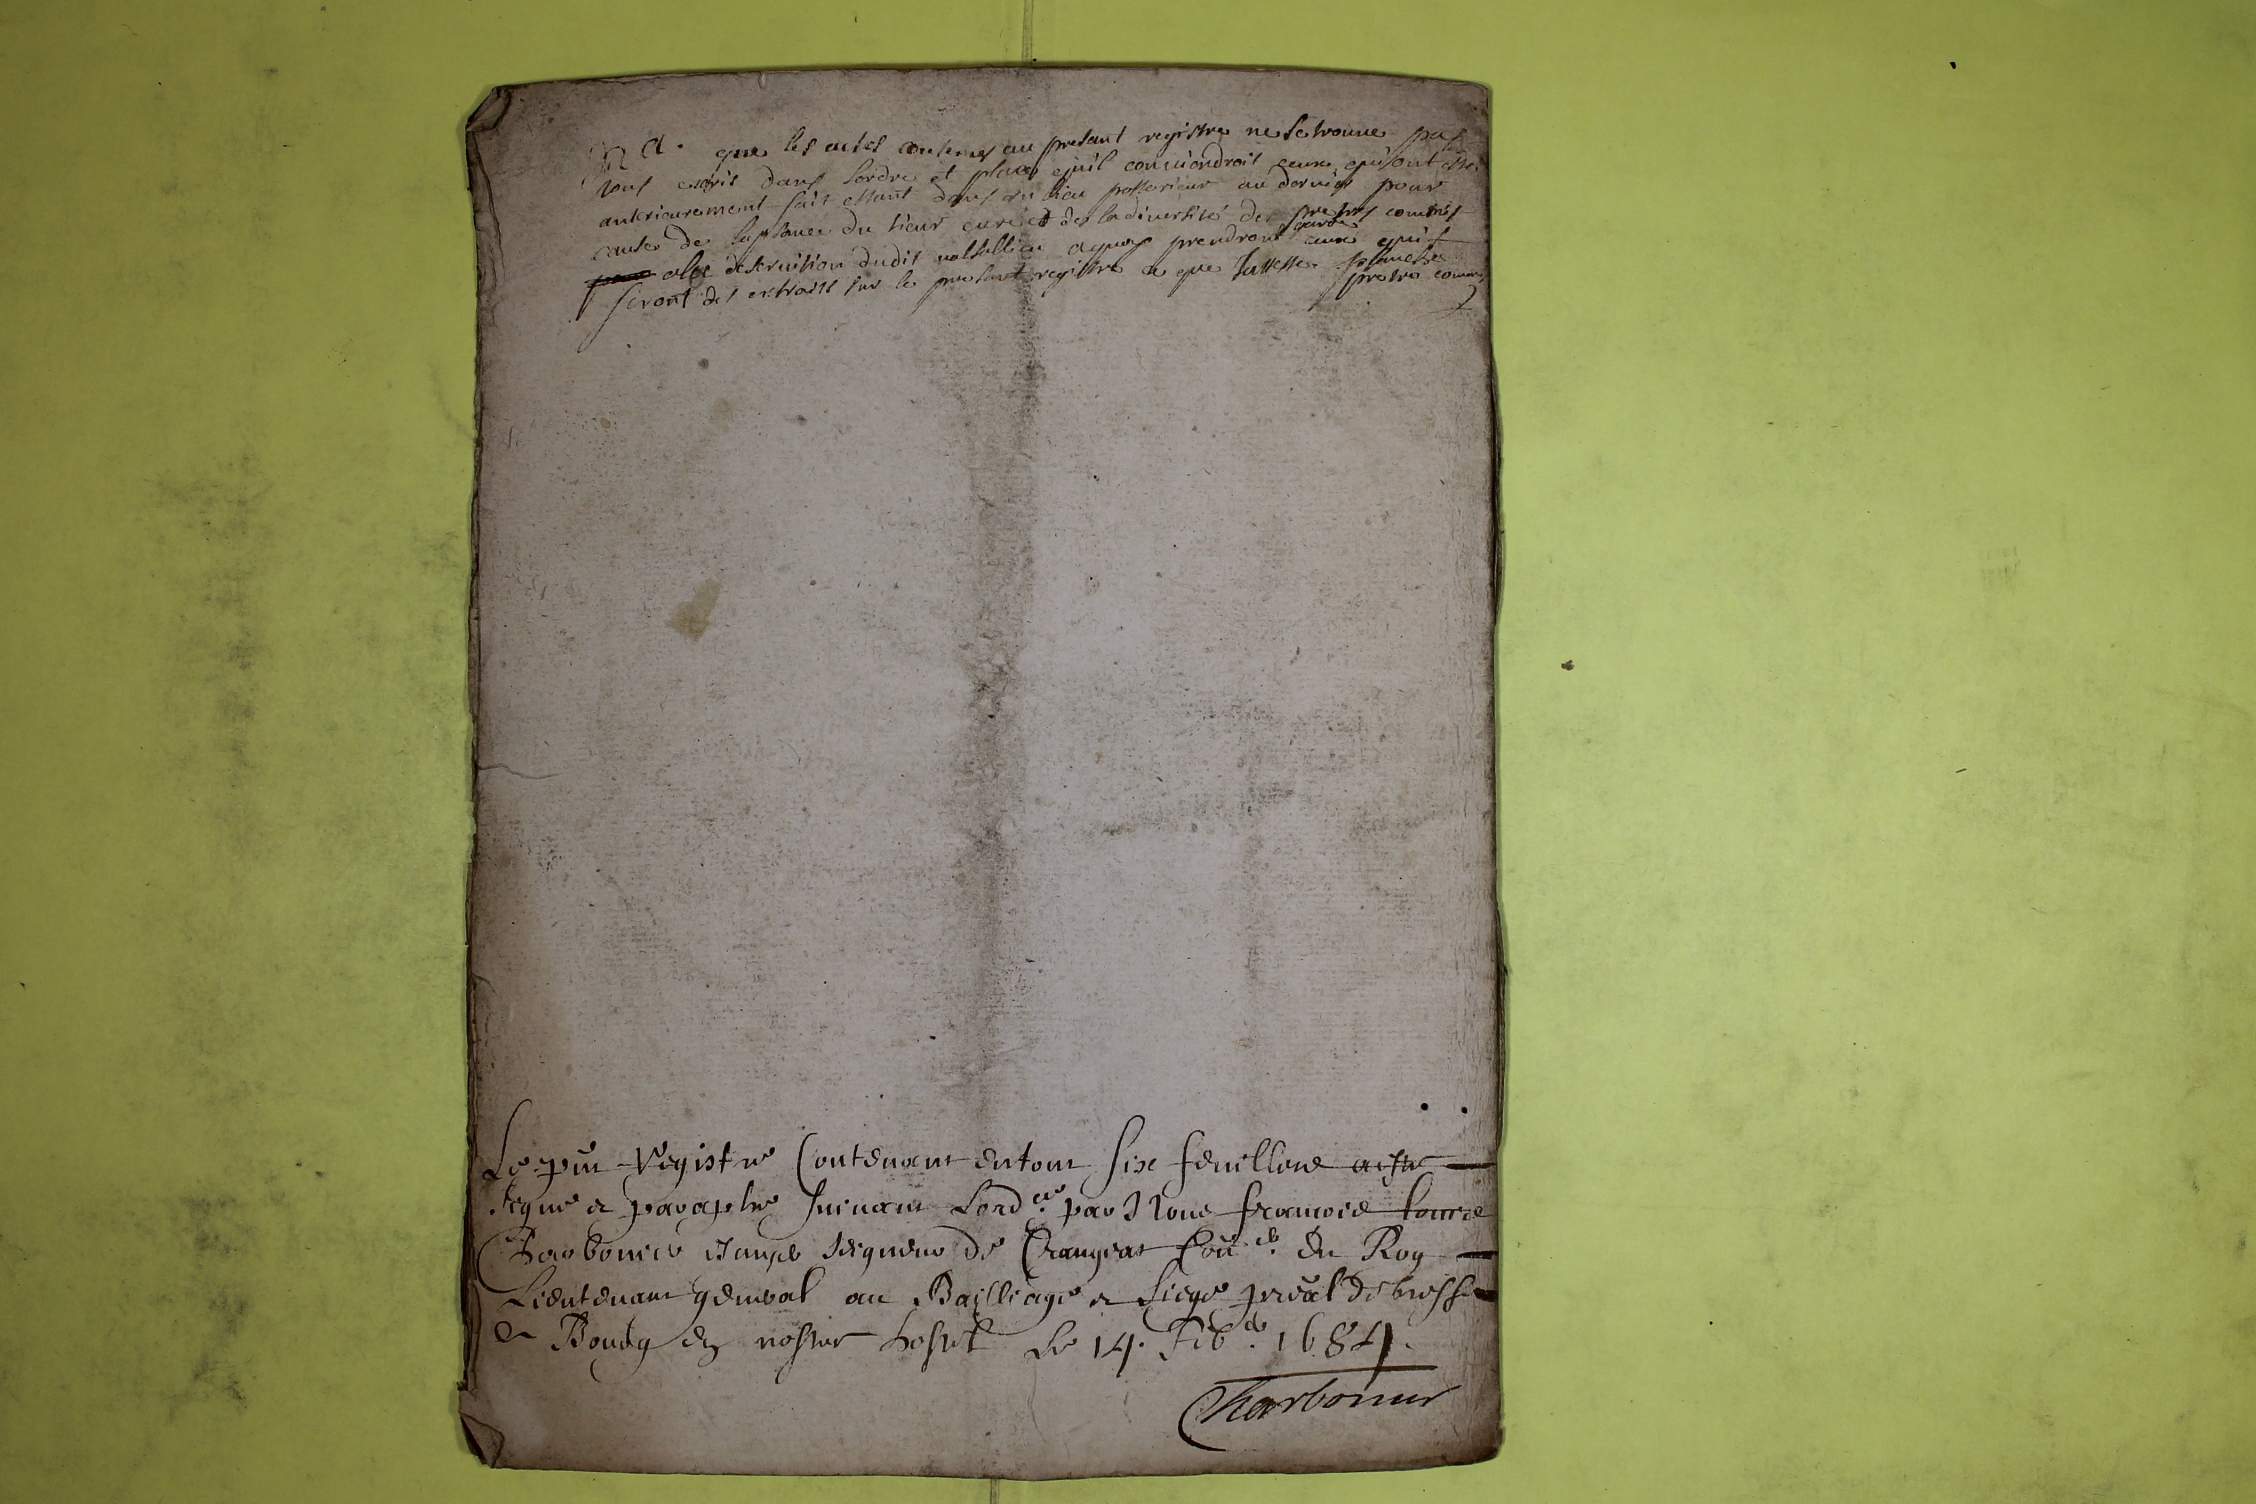 Na. que les actes contenus au presant registre ne se trouve pas
tous escrit dans lordre et place qu'il conviendroit ceux qui sont
anterieurement fait estant dans un lieu posterieur au dernier pour
cause de du sieur curé et de la diversité des prestres commis
a la deservition dudit a quoy prendront garde ceux qui
feront des extraits sur le presant registre ce que J'atteste planche
prestre commis
Le pnt Registre Contenant en tout six feuillets
signé et paraphé suivant Lord.ce par Nous francois
Charbonier Seigneur de Crangeat Con.er du Roy
Lieutenant general au Bailliage et siege p̃nal de bresse
A Bourg en nostre hostel Le 14. feb.er 1684.
Charbonier